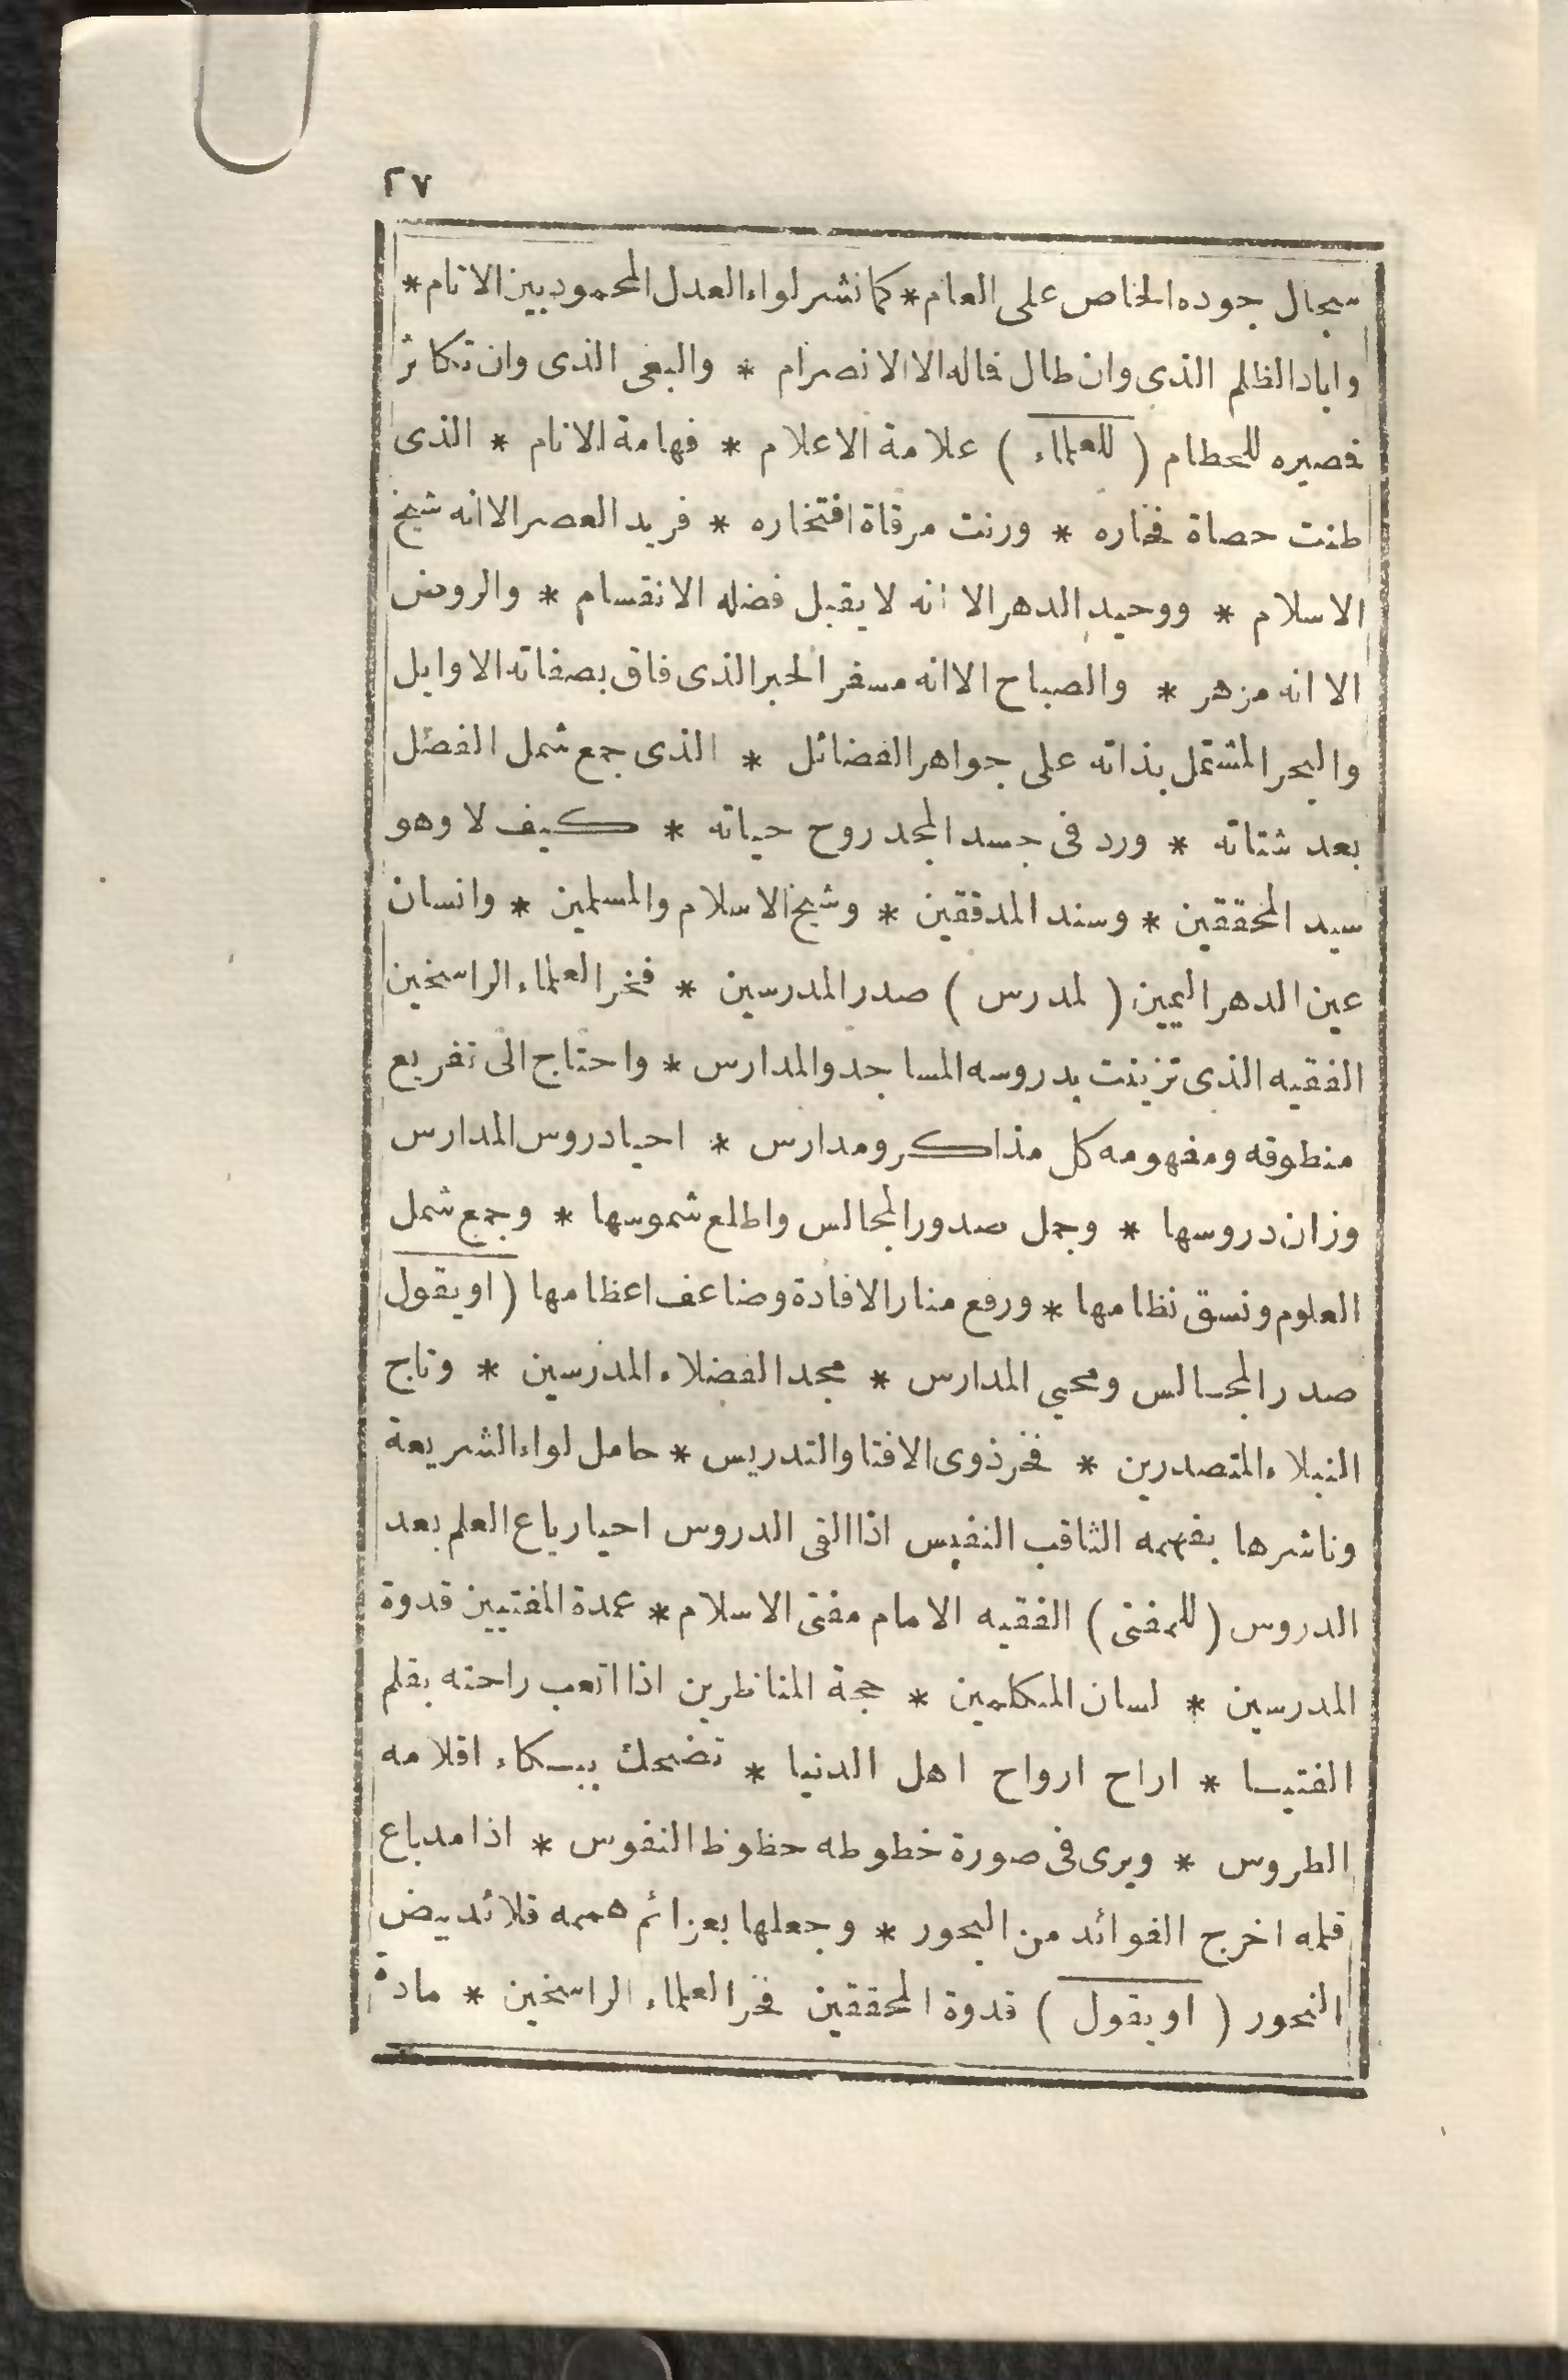 ٢٧
سجال جوده الخاص على العام * كما نشر لواء العدل المحمود بين الانام *
واباد الظلم الذى وان طال فماله الا الانصرام * والبغى الذى وان تكاثر
فصيره للحطام ( للعلماء ) علامة الاعلام * فهامة الانام * الذى
طنت حصاة فخاره * ورنت مرقاة افتخاره * فريد العصر الا انه شيخ
الاسلام * ووحيد الدهر الا انه لا يقبل فضله الانقسام * والروض
الا انه مزهر * والصباح الا انه مسفر الحبر الذى فاق بصفاته الاوايل
والبحر المشتمل بذاته على جواهر الفضائل * الذى جمع شمل الفضل
بعد شتاته * ورد فى جسد المجد روح حياته * كيف لا وهو
سيد المحققين * وسند المدققين * وشيخ الاسلام والمسلمين * وانسان
عين الدهر اليمين ( لمدرس ) صدر المدرسين * فخر العلماء الراسخين
الفقيه الذى تزينت بدروسه المساجد والمدارس * واحتاج الى تفريع
منطوقه ومفهومه كل مذاكر ومدارس * احيا دروس المدارس
وزان دروسها * وجمل صدور المجالس واطلع شموسها * وجمع شمل
العلوم ونسق نظامها * ورفع منار الافادة وضاعف اعظامها ( او يقول
صدر المجالس ومحيي المدارس * مجد الفضلاء المدرسين * وتاج
النبلاء المتصدرين * فخر ذوى الافتا والتدريس * حامل لواء الشريعة
وناشرها بفهمه الثاقب النفيس اذا القى الدروس احيا رباع العلم بعد
الدروس ( للمفتى ) الفقيه الامام مفتى الاسلام * عمدة المفتيين قدوة
المدرسين * لسان المتكلمين * حجة المناظرين اذا اتعب راحته بقلم
الفتيا * اراح ارواح اهل الدنيا * تضحك ببكاء اقلامه
الطروس * ويرى فى صورة خطوطه حظوظ النفوس * اذا مد باع
قلمه اخرج الفوائد من البحور * وجعلها بعزائم هممه قلائد بيض
النحور ( او يقول ) قدوة المحققين فخر العلماء الراسخين * مادة